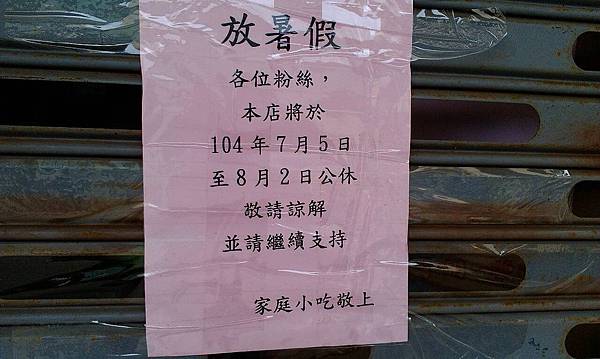 放暑假
各位粉絲，
本店將於
104年7月5日
至8月2日公休
敬請諒解
並請繼續支持
家庭小吃敬上